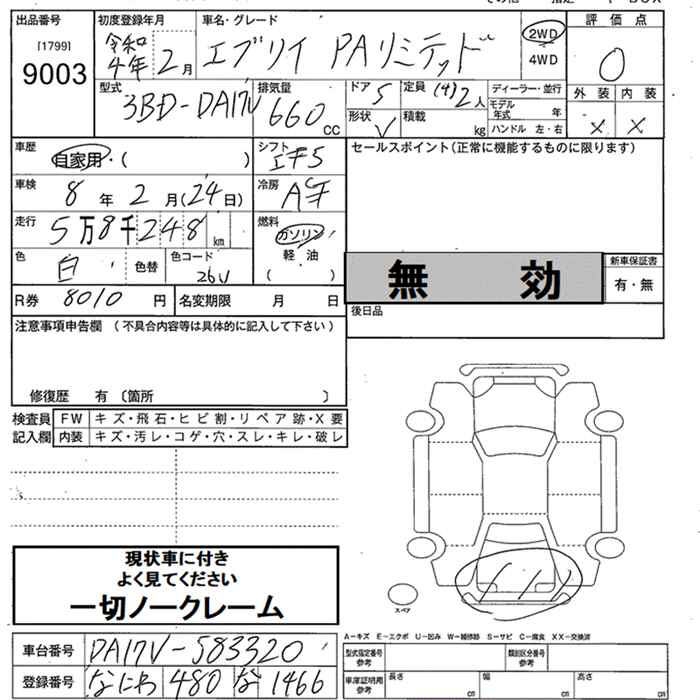 出品番号
[1799]
9003
初度登録年月
令和
4年 2月
車名・グレード
エブリイ PAリミテッド
2WD
4WD
評価点
0
型式
3BD-DA17V
排気量
660
CC
ドア
5
定員
(4)2人
ディーラー・並行
モデル
年式 年
形状
V
積載
kg
ハンドル 左・右
外装 内装
× ×
車歴
自家用・( )
シフト
車検
8年 2月(24日)
冷房
走行
5万8千248km
燃料
ガソリン
軽油
( )
色
白
色替
色コード
26U
R券 8010 円
名変期限 月 日
セールスポイント(正常に機能するものに限ります)
無効
新車保証書
有・無
後日品
注意事項申告欄 (不具合内容等は具体的に記入して下さい)
修復歴 有 〔箇所 〕
検査員
記入欄
FW キズ・飛石・ヒビ割・リペア跡・X要
内装 キズ・汚レ・コゲ・穴・スレ・キレ・破レ
現状車に付き
よく見てください
一切ノークレーム
スペア
A－キズ E－エクボ U－凹み W－補修跡 S－サビ C－腐食 XX－交換済
車台番号 DA17V-583320
登録番号 なにわ 480 な 1466
型式指定番号
参考
類別区分番号
参考
車庫証明用
参考
長さ cm
幅 cm
高さ cm